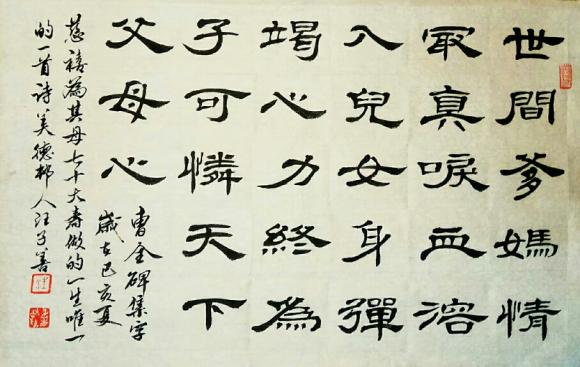 世間爹媽情
冣真唳血溶
入兒女身彈
竭心力終為
子可憐天下
父母心
曹全碑集字
歲在己亥夏
慈禧為其母七十大壽做的一生唯一
的一首诗美德邨人汪子善